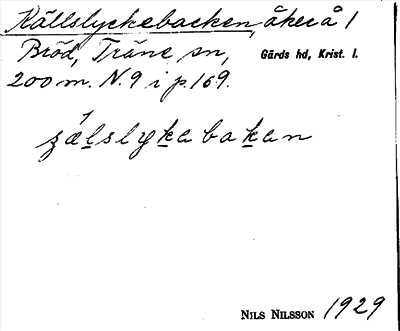 Källslyckebacken, åker å 1
Bröd, Träne sn, Gärds hd, Krist. l.
200 m. N. 9 i p. 169.
sælslykebakan
NILS NILSSON 1929